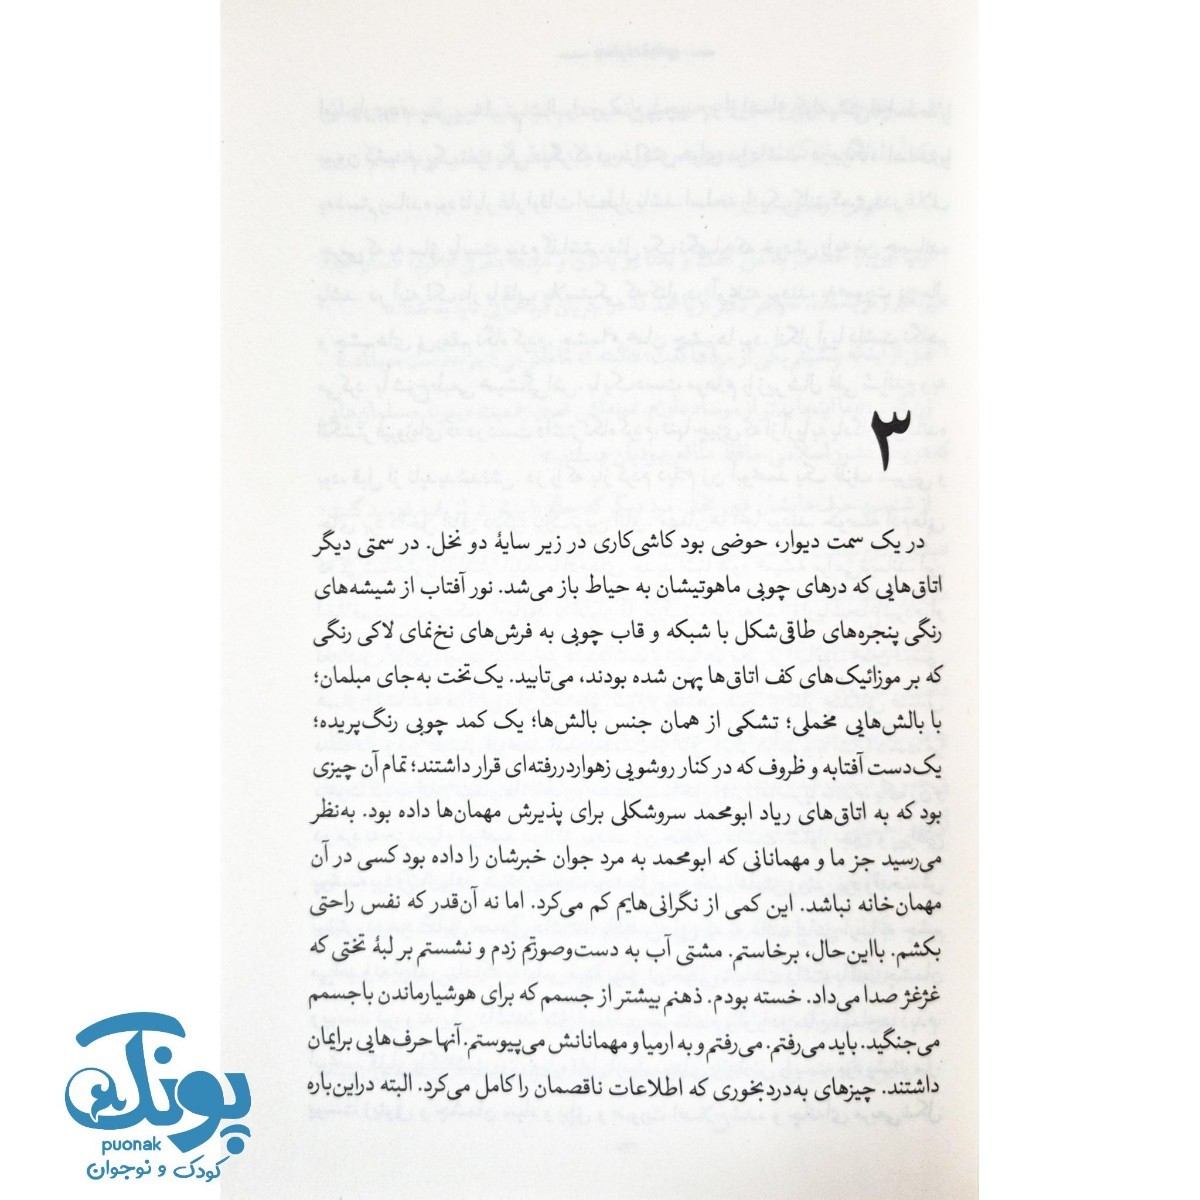 ۳
در یک سمت دیوار، حوضی بود کاشی‌کاری در زیر سایهٔ دو نخل. در سمتی دیگر
اتاق‌هایی که درهای چوبی ماهوتیشان به حیاط باز می‌شد. نور آفتاب از شیشه‌های
رنگی پنجره‌های طاقی‌شکل با شبکه و قاب چوبی به فرش‌های نخ‌نمای لاکی رنگی
که بر موزائیک‌های کف اتاق‌ها پهن شده بودند، می‌تابید. یک‌تخت به‌جای مبلمان؛
با بالش‌هایی مخملی؛ تشکی از همان جنس بالش‌ها؛ یک کمد چوبی رنگ‌پریده؛
یک‌دست آفتابه و ظروف که در کنار روشویی زهواردررفته‌ای قرار داشتند؛ تمام آن چیزی
بود که به اتاق‌های ریاد ابومحمد سروشکلی برای پذیرش مهمان‌ها داده بود. به‌نظر
می‌رسید جز ما و مهمانانی که ابومحمد به مرد جوان خبرشان را داده بود کسی در آن
مهمان‌خانه نباشد. این کمی از نگرانی‌هایم کم می‌کرد. اما نه آن‌قدر که نفس راحتی
بکشم. بااین‌حال، برخاستم. مشتی آب به دست‌وصورتم زدم و نشستم بر لبهٔ تختی که
غژغژ صدا می‌داد. خسته بودم. ذهنم بیشتر از جسمم که برای هوشیارماندن باجسمم
می‌جنگید. باید می‌رفتم. می‌رفتم و به ارمیا و مهمانانش می‌پیوستم. آنها حرف‌هایی برایمان
داشتند. چیزهای به‌دردبخوری که اطلاعات ناقصمان را کامل می‌کرد. البته دراین‌باره
پونک
puonak
کودک و نوجوان